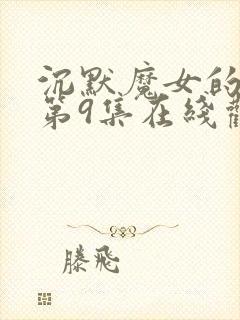 沉默魔女的
第9集在线
滕飞